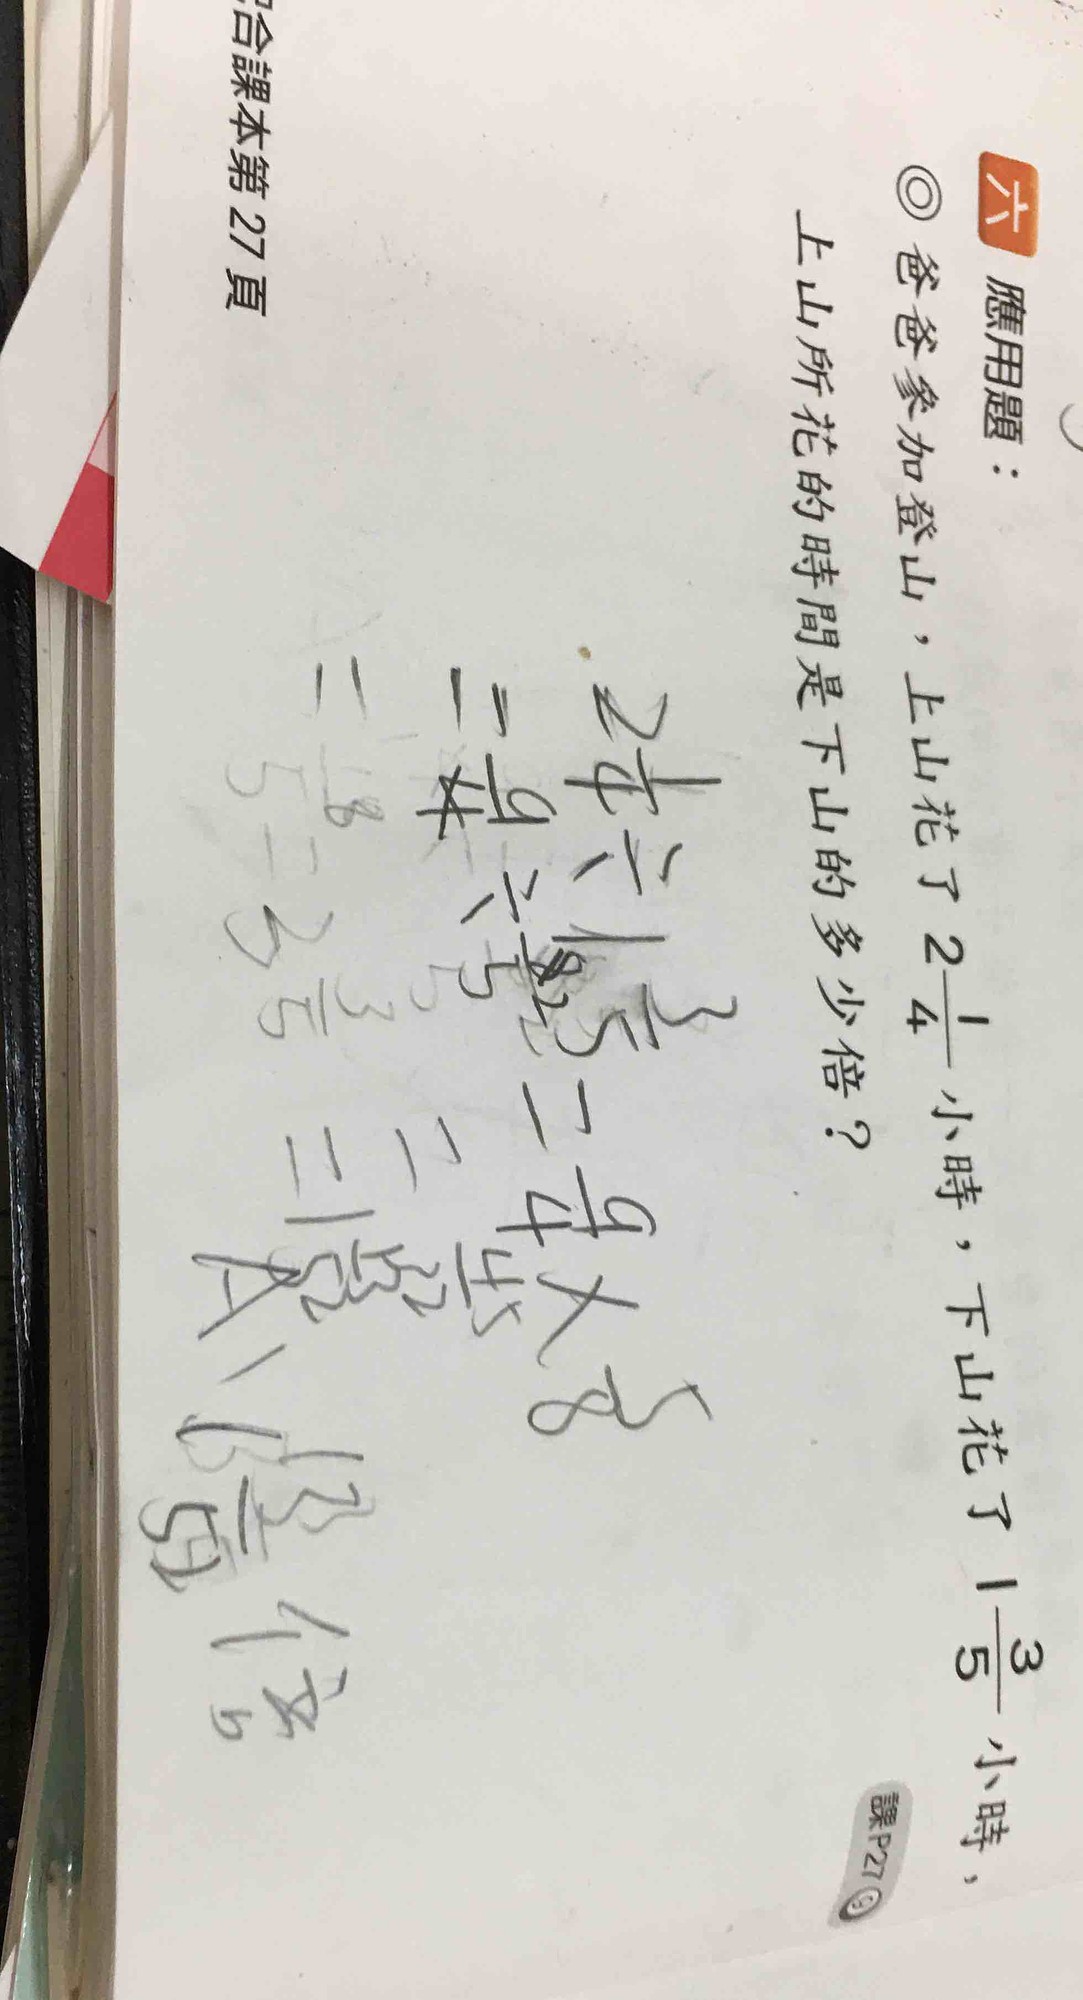 六 應用題：
◎爸爸參加登山，上山花了2 1/4小時，下山花了1 3/5小時，
上山所花的時間是下山的多少倍？
課P27⑨
2 1/4 ÷ 1 3/5
= 9/4 ÷ 8/5 = 9/4 × 5/8
= 45/32
= 1 13/32
A：1 13/32 倍
合課本第27頁